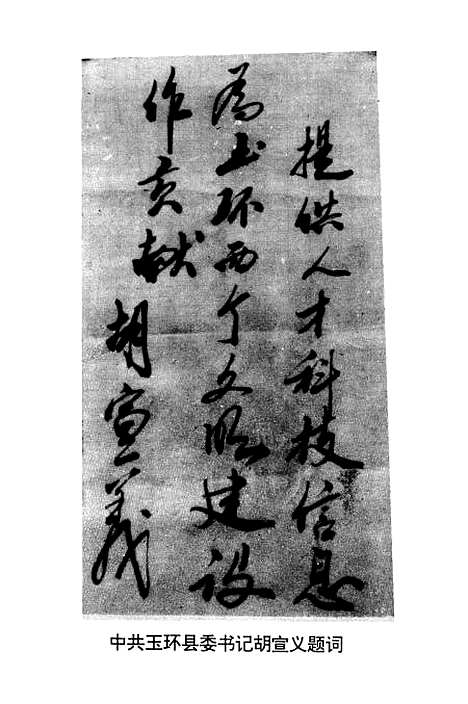 提供人才科技信息
为玉环两个文明建设
作贡献
胡宣义
中共玉环县委书记胡宣义题词